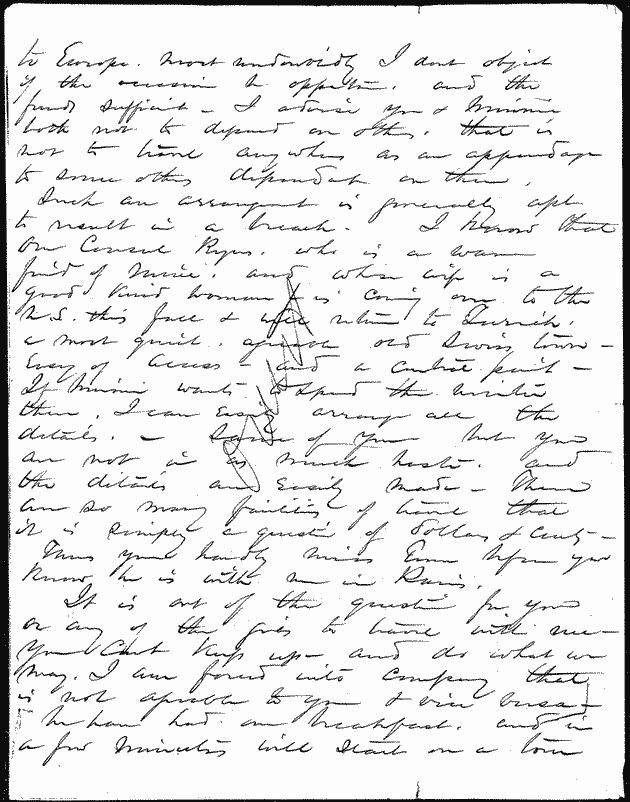 to Europe. most undoubtedly I dont object
if the occasion be opportune. and the
funds sufficient - I advise you & Minnie
both not to depend on others. that is
not to travel anywhere as an appendage
to some others dependent on them.
Such an arrangement is generally apt
to result in a breach. I know that
our Consul Byers. who is a warm
friend of mine. and whose wife is a
good kind woman is coming over to the
U.S. this fall & will return to Zurich.
a most quiet. agreeable old Swiss town -
Easy of access - and a central point -
If Minnie wants to spend the winter
there, I can easily arrange all the
details. - Same of you but you
are not in as much haste. and
the details are easily made - There
are so many facilities of travel that
it is simply a question of dollars & cents -
Thus you hardly miss before you
Know he is with me in Paris.
It is out of the question for you
or any of the girls to travel with me -
You cant keep up - and do what we
may. I am forced into company that
is not agreeable to you & vice versa -
We have had our breakfast. and in
a few minutes will start on a tour